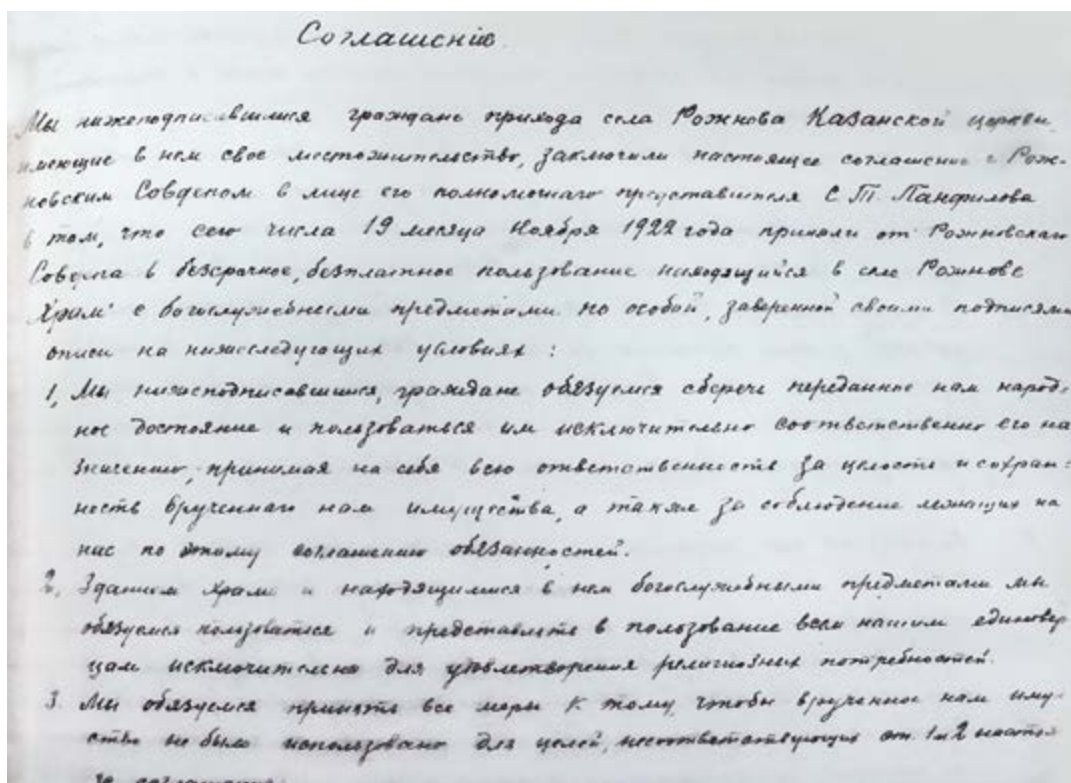 Соглашенiе.
Мы нижеподписавшиеся граждане прихода села Рожнова Казанской церкви,
имеющие в нем свое местожительство, заключили настоящее соглашение с Рож-
новским Совдепом в лице его полномочнаго представителя С. Т. Панфилова
в том, что сего числа 19 месяца Ноября 1922 года приняли от Рожновскаго
Совдепа в безсрочное, безплатное пользование находящийся в селе Рожнове
Храм с богослужебными предметами по особой, заверенной своими подписями
описи на нижеследующих условиях:
1, Мы нижеподписавшиеся, граждане обязуемся сберечь переданное нам народ-
ное достояние и пользоваться им исключительно соответственно его на
значению, принимая на себя всю ответственность за целость и сохран-
ность врученнаго нам имущества, а также за соблюдение лежащих на
нас по этому соглашению обязанностей.
2, Зданием храма и находящимися в нем богослужебными предметами мы
обязуемся пользоваться и представлять в пользование всем нашим единовер
цам исключительно для удовлетворения религиозных потребностей.
3. Мы обязуемся принять все меры к тому, чтобы врученное нам иму-
ство не было использовано для целей, несоответствующих ст. 1 и 2 настоя
го соглашения.